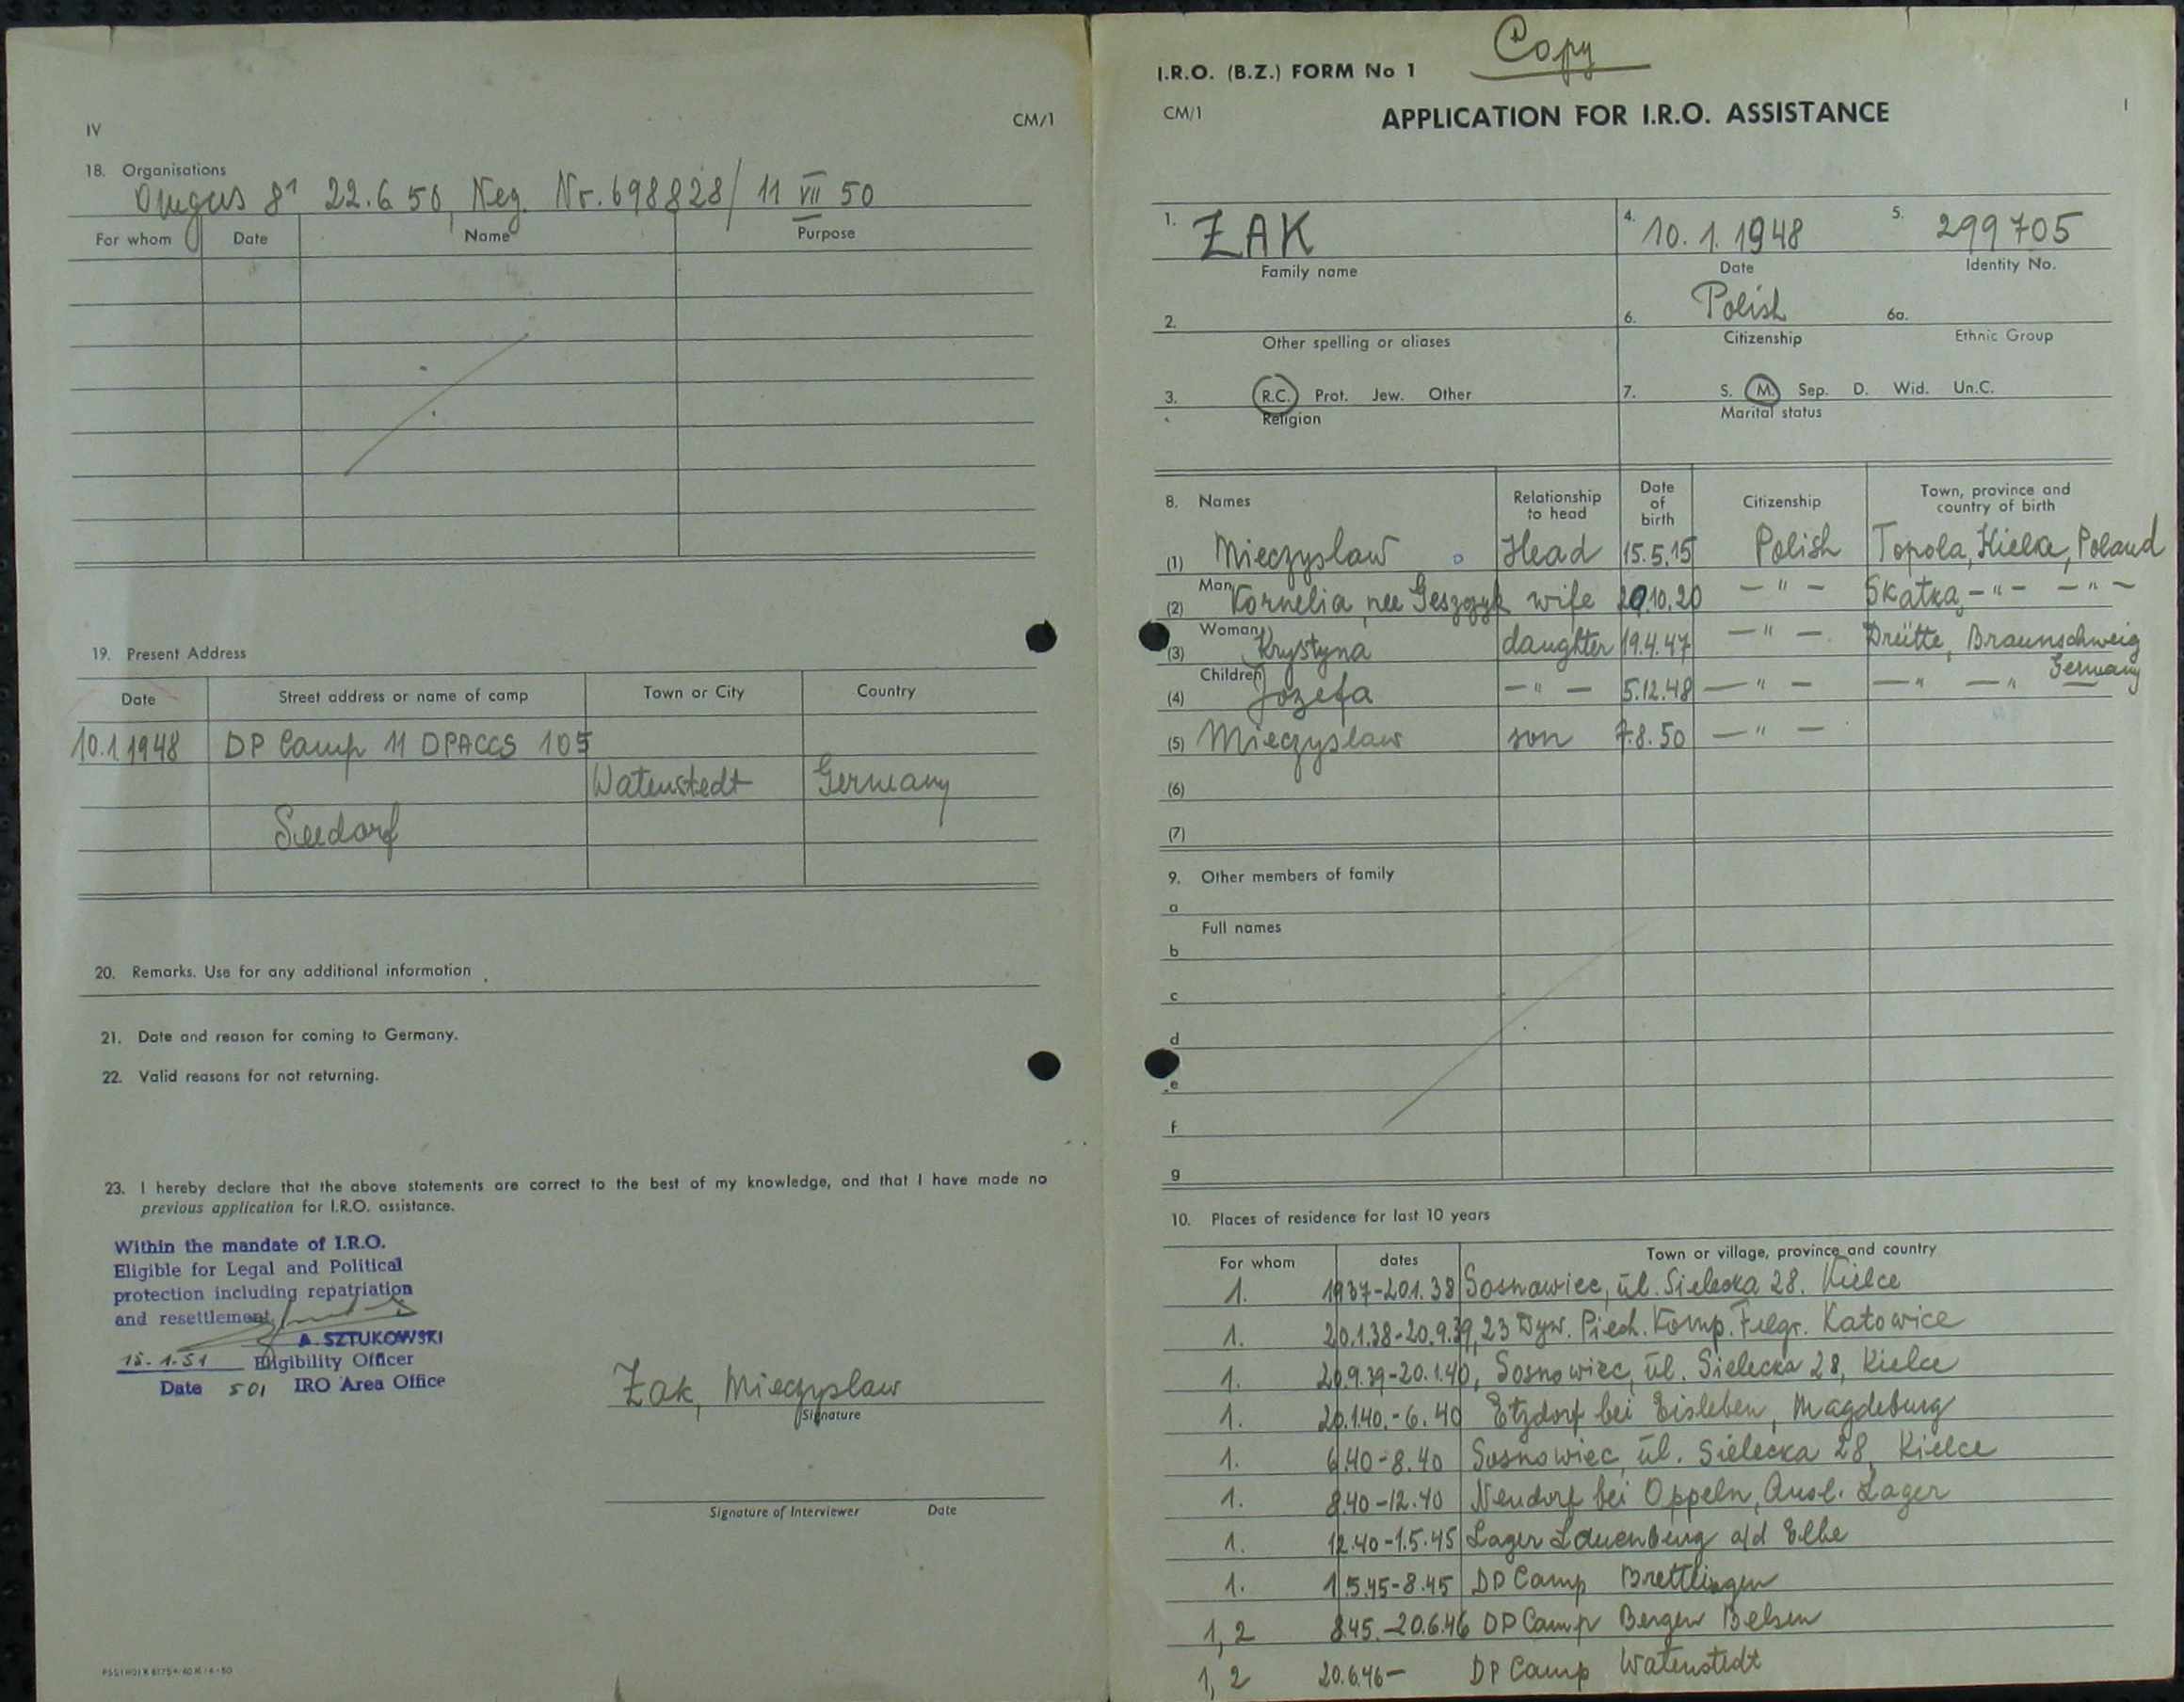 IV
CM/1
18. Organisations
22.6 50, Neg. Nr. 698828/ 11 VII 50
For whom Date Name Purpose
19. Present Address
Date Street address or name of camp Town or City Country
10.1.1948 DP Camp 11 DPACCS 105
Watenstedt Germany
Seedorf
20. Remarks. Use for any additional information
21. Date and reason for coming to Germany.
22. Valid reasons for not returning.
23. I hereby declare that the above statements are correct to the best of my knowledge, and that I have made no
previous application for I.R.O. assistance.
Within the mandate of I.R.O.
Eligible for Legal and Political
protection including repatriation
and resettlement
A. SZTUKOWSKI
15.1.51 Eligibility Officer
Date 501 IRO Area Office
Żak, Mieczyslaw
Signature
Signature of Interviewer Date
Copy
I.R.O. (B.Z.) FORM No 1
CM/1 APPLICATION FOR I.R.O. ASSISTANCE I
1. ŻAK 4. 10.1.1948 5. 299705
Family name Date Identity No.
2. 6. Polish 6a.
Other spelling or aliases Citizenship Ethnic Group
3. R.C. Prot. Jew. Other 7. S. M. Sep. D. Wid. Un.C.
Religion Marital status
8. Names Relationship to head Date of birth Citizenship Town, province and country of birth
(1) Mieczyslaw Head 15.5.15 Polish Topola, Kielce, Poland
Man
(2) Kornelia, nee wife 20.10.20 -"- Skatka -"- -"-
Woman
(3) Krystyna daughter 19.4.47 -"- Drütte, Braunschweig
Children Germany
(4) Jozefa -"- 5.12.48 -"- -"- -"-
(5) Mieczyslaw son 7.8.50 -"-
(6)
(7)
9. Other members of family
a
Full names
b
c
d
e
f
g
10. Places of residence for last 10 years
For whom dates Town or village, province and country
1. 1937-20.1.38 Sosnowiec, ul. Sielecka 28. Kielce
1. 20.1.38-20.9.39, 23 Dyw. Piech. Komp. Katowice
1. 20.9.39-20.1.40, Sosnowiec, ul. Sielecka 28, Kielce
1. 20.1.40.-6.40 Etzdorf bei Eisleben, Magdeburg
1. 6.40-8.40 Sosnowiec, ul. Sielecka 28, Kielce
1. 8.40-12.40 Neudorf bei Oppeln, Ausl. Lager
1. 12.40-1.5.45 Lager Lauenburg a/d Elbe
1. 1.5.45-8.45 DP Camp
1, 2 8.45.-20.6.46 DP Camp Bergen Belsen
1, 2 20.6.46- DP Camp Watenstedt